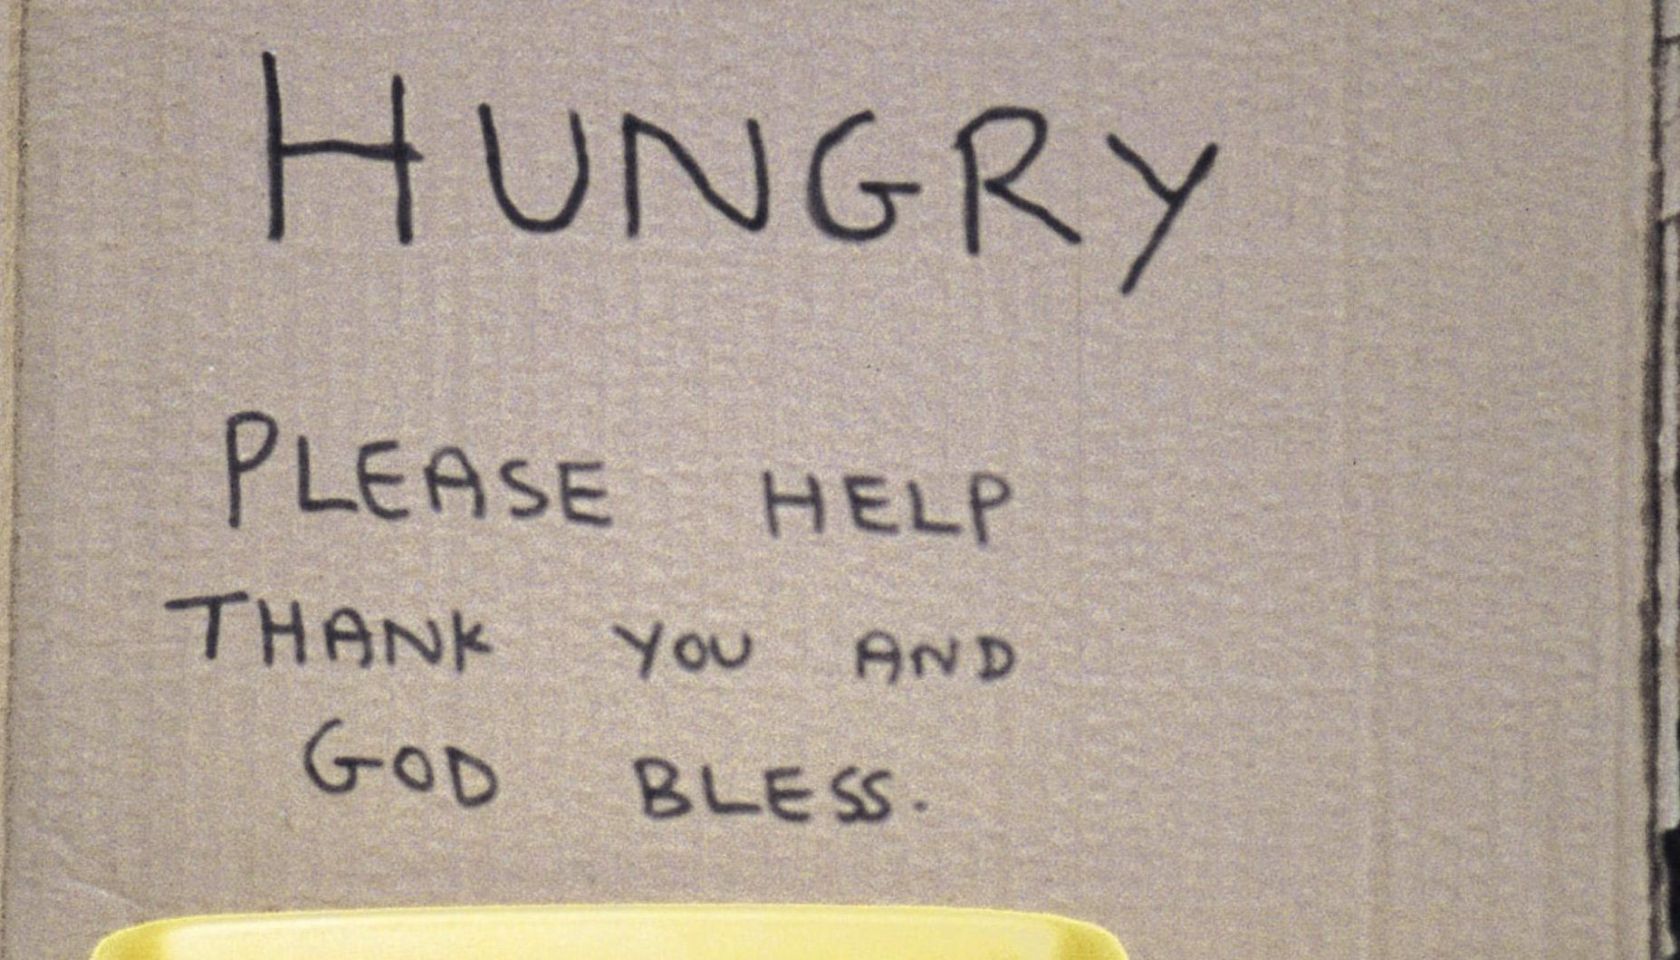 HUNGRY
PLEASE HELP
THANK YOU AND
GOD BLESS.